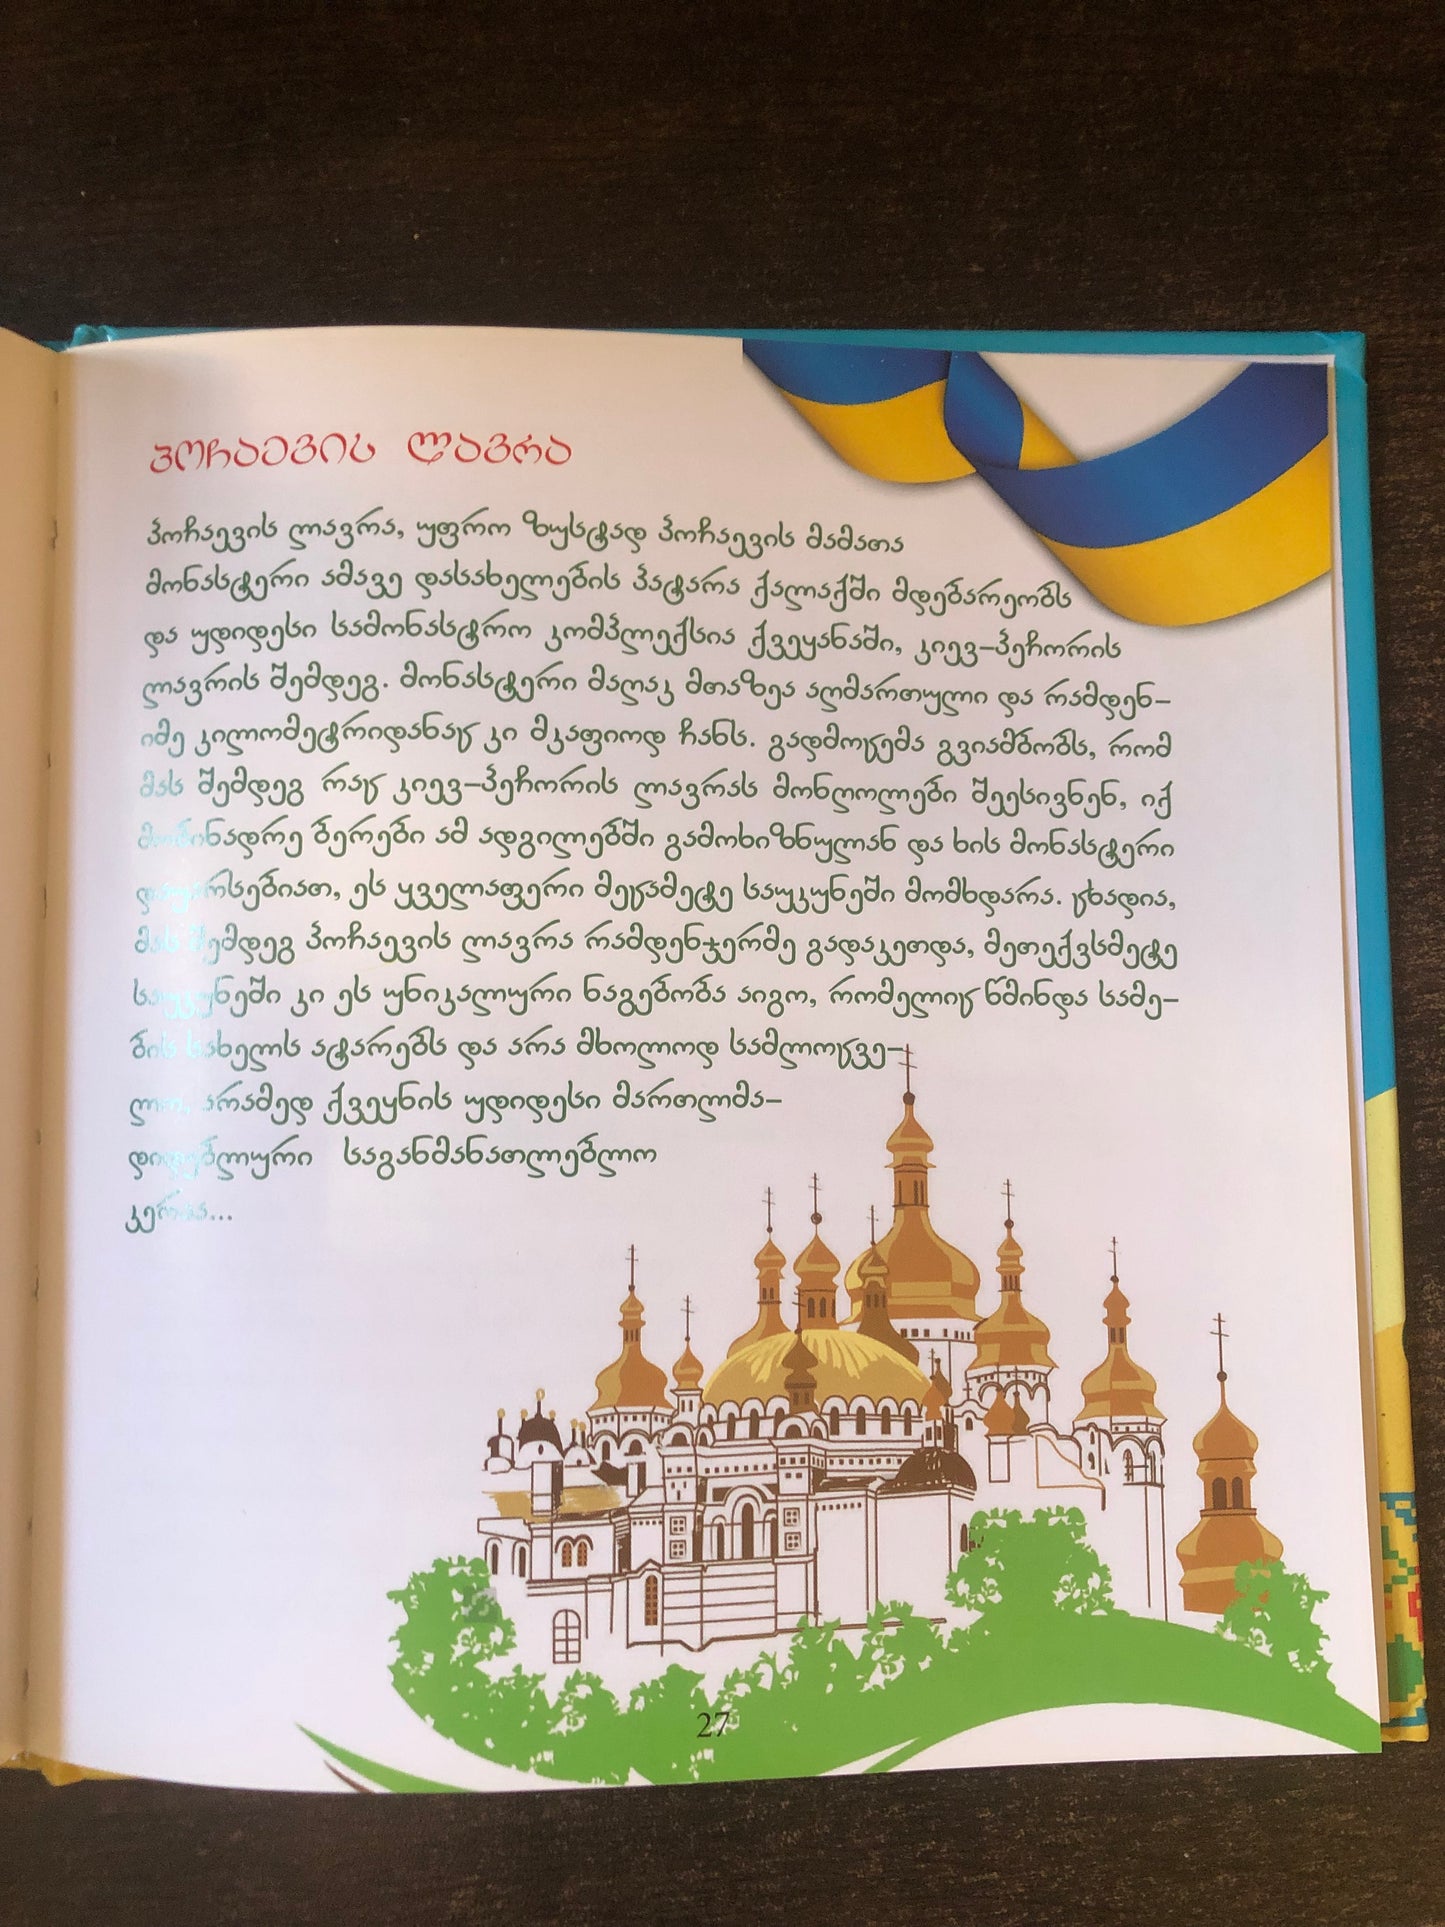 პოჩაევის ლავრა
პოჩაევის ლავრა, უფრო ზუსტად პოჩაევის მამათა
მონასტერი ამავე დასახელების პატარა ქალაქში მდებარეობს
და უდიდესი სამონასტრო კომპლექსია ქვეყანაში, კიევ-პეჩორის
ლავრის შემდეგ. მონასტერი მაღაკ მთაზეა აღმართული და რამდენ-
იმე კილომეტრიდანაც კი მკაფიოდ ჩანს. გადმოცემა გვიამბობს, რომ
მას შემდეგ რაც კიევ-პეჩორის ლავრას მონღოლები შეესივნენ, იქ
მობინადრე ბერები ამ ადგილებში გამოხიზნულან და ხის მონასტერი
დაუარსებიათ, ეს ყველაფერი მეცამეტე საუკუნეში მომხდარა. ცხადია,
მას შემდეგ პოჩაევის ლავრა რამდენჯერმე გადაკეთდა, მეთექვსმეტე
საუკუნეში კი ეს უნიკალური ნაგებობა აიგო, რომელიც წმინდა სამე-
ბის სახელს ატარებს და არა მხოლოდ სამლოცვე-
ლო, არამედ ქვეყნის უდიდესი მართლმა-
დიდებლური საგანმანათლებლო
კერაა...
27